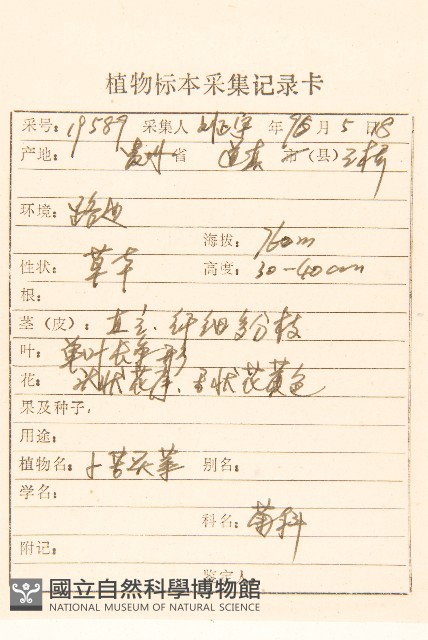 植物标本采集记录卡
采号: 19589 采集人 刘正宇 年 95 月 5 日 18
产地: 贵州 省 道真 市 (县) 三桥
环境: 路边
海拔: 760m
性状: 草本 高度: 30-40cm
根:
茎 (皮): 直立. 纤细多分枝
叶: 单叶
花: 状花序. 舌状花黄色
果及种子:
用途:
植物名: 小苦荬 别名:
学名:
科名: 菊科
附记:
鉴定人
國立自然科學博物館
NATIONAL MUSEUM OF NATURAL SCIENCE